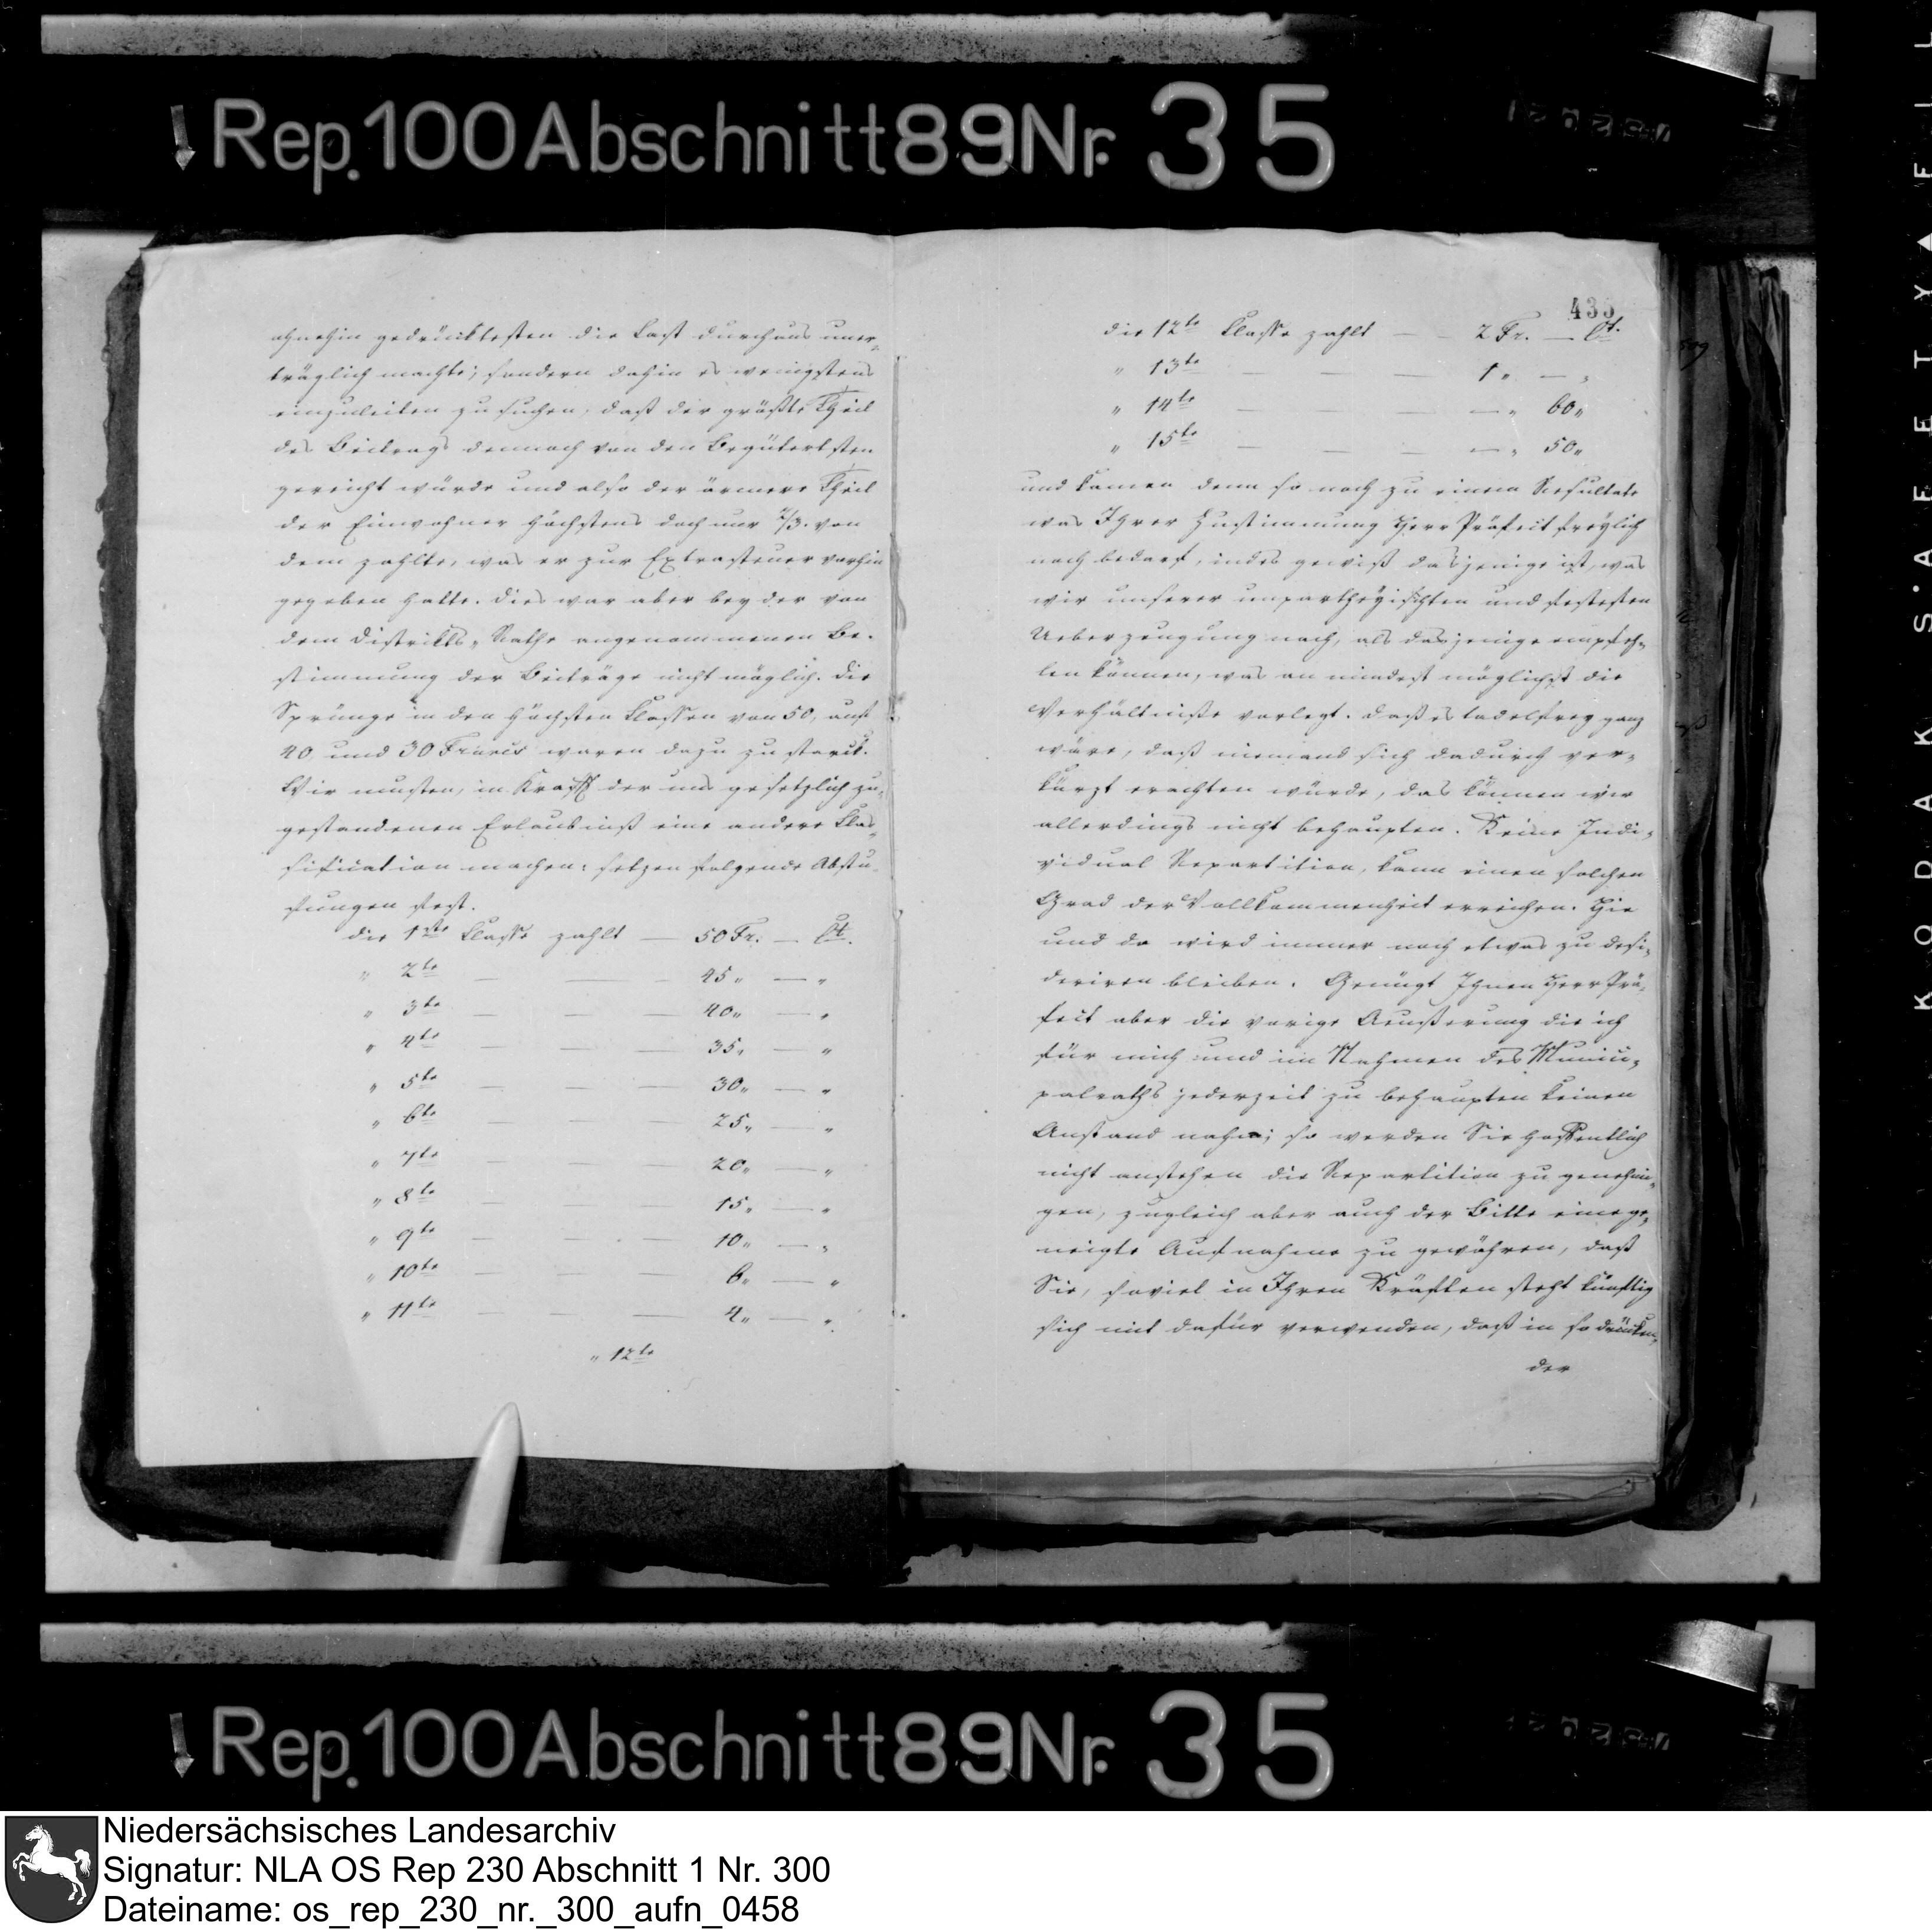 Rep. 100 Abschnitt 89 Nr. 35
ohnehin gedrücktesten die Last durchaus uner„
träglich machte; sondern dahin es wenigstens
einzuleiten zu suchen, daß der größte Theil
des Beitrags dennoch von den Begütertsten
gereicht würde und also der ärmere Theil
der Einwohner höchstens doch nur 2/3. von
dem zahlte, was er zur Extrasteuer vorhin
gegeben hatte. Dies war aber bey der von
dem Distrikts„Rathe angenommenen Be„
stimmung der Beiträge nicht möglich. Die
Sprünge in den höchsten Klassen von 50, auf
40, und 30 Francs waren dazu zu starck.
Wir musten, in Krafft der uns gesetzlich zu„
gestandenen Erlaubniß eine andere Klas„
sification machen: setzen folgende Abstu„
fungen fest.
die 1ste Klasse zahlt — 50 Fr. — Ct.
„ 2te — — 45 „ — „
„ 3te — — — 40 „ — „
„ 4te — — — 35 „ — „
„ 5te — — — 30 „ — „
„ 6te — — — 25 „ — „
„ 7te — — — 20 „ — „
„ 8te — — — 15 „ — „
„ 9te — — — 10 „ — „
„ 10te — — — 6 „ — „
„ 11te — — — 4 „ — „
„ 12te
435
die 12te Klasse zahlt — — 2 Fr. — Ct.
„ 13te — — — 1 „ — „
„ 14te — — — „ 60 „
„ 15te — — — — „ 50 „
und kamen denn so nach zu einem Resultate
was Ihrer Zustimmung Herr Präfect freylich
noch bedarf, indes gewiß dasjenige ist, was
wir unserer unpartheyischten und festesten
Ueberzeugung nach, als dasjenige empfeh„
len können, was am mindest möglichst die
Verhältniße verlegt. Daß es tadelfrey ganz
wäre, daß niemand sich dadurch ver„
kürzt erachten würde, das können wir
allerdings nicht behaupten. Keine Indi„
vidual Repartition, kann einen solchen
Grad der Vollkommenheit erreichen. Hie
und da wird immer noch etwas zu desi„
deriren bleiben. Genügt Ihnen Herr Prä„
fect aber die vorige Aeußerung die ich
für mich und im Nahmen des Munici„
palraths jederzeit zu behaupten keinen
Anstand nehme; so werden Sie hoffentlich
nicht anstehen die Repartition zu genehmi„
gen, zugleich aber auch der Bitte eine ge„
neigte Aufnahme zu gewähren, daß
Sie, soviel in Ihren Kräften steht künftig
sich mit dafür verwenden, daß in so drücken„
der
Rep. 100 Abschnitt 89 Nr. 35
KODAK S'AFETY FIL
Niedersächsisches Landesarchiv
Signatur: NLA OS Rep 230 Abschnitt 1 Nr. 300
Dateiname: os_rep_230_nr._300_aufn_0458